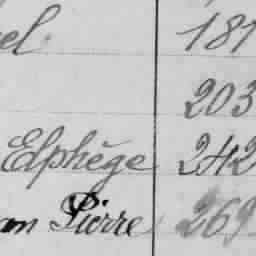 el. 181
203
Elphège 242
an Pierre 269